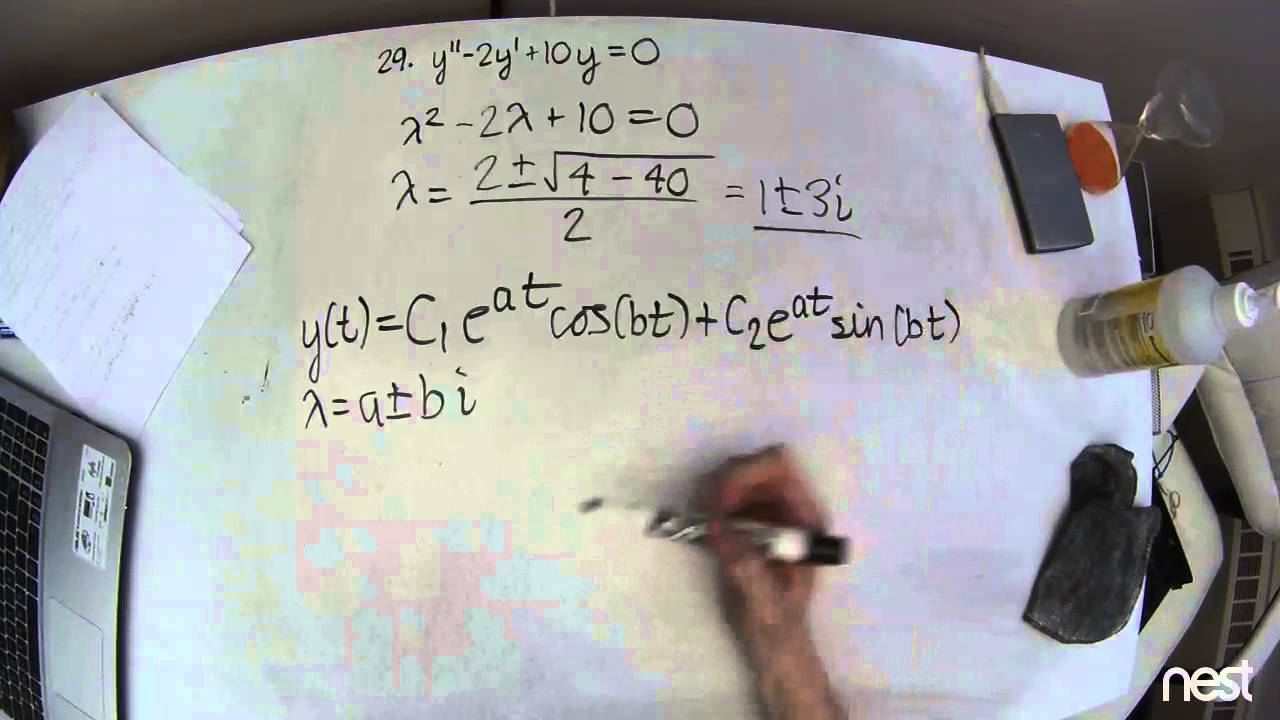 29. y''-2y'+10y=0
λ²-2λ+10=0
λ = (2±√(4-40))/2 = 1±3i
y(t)=C₁e^{at}cos(bt)+C₂e^{at}sin(bt)
λ=a±bi
nest